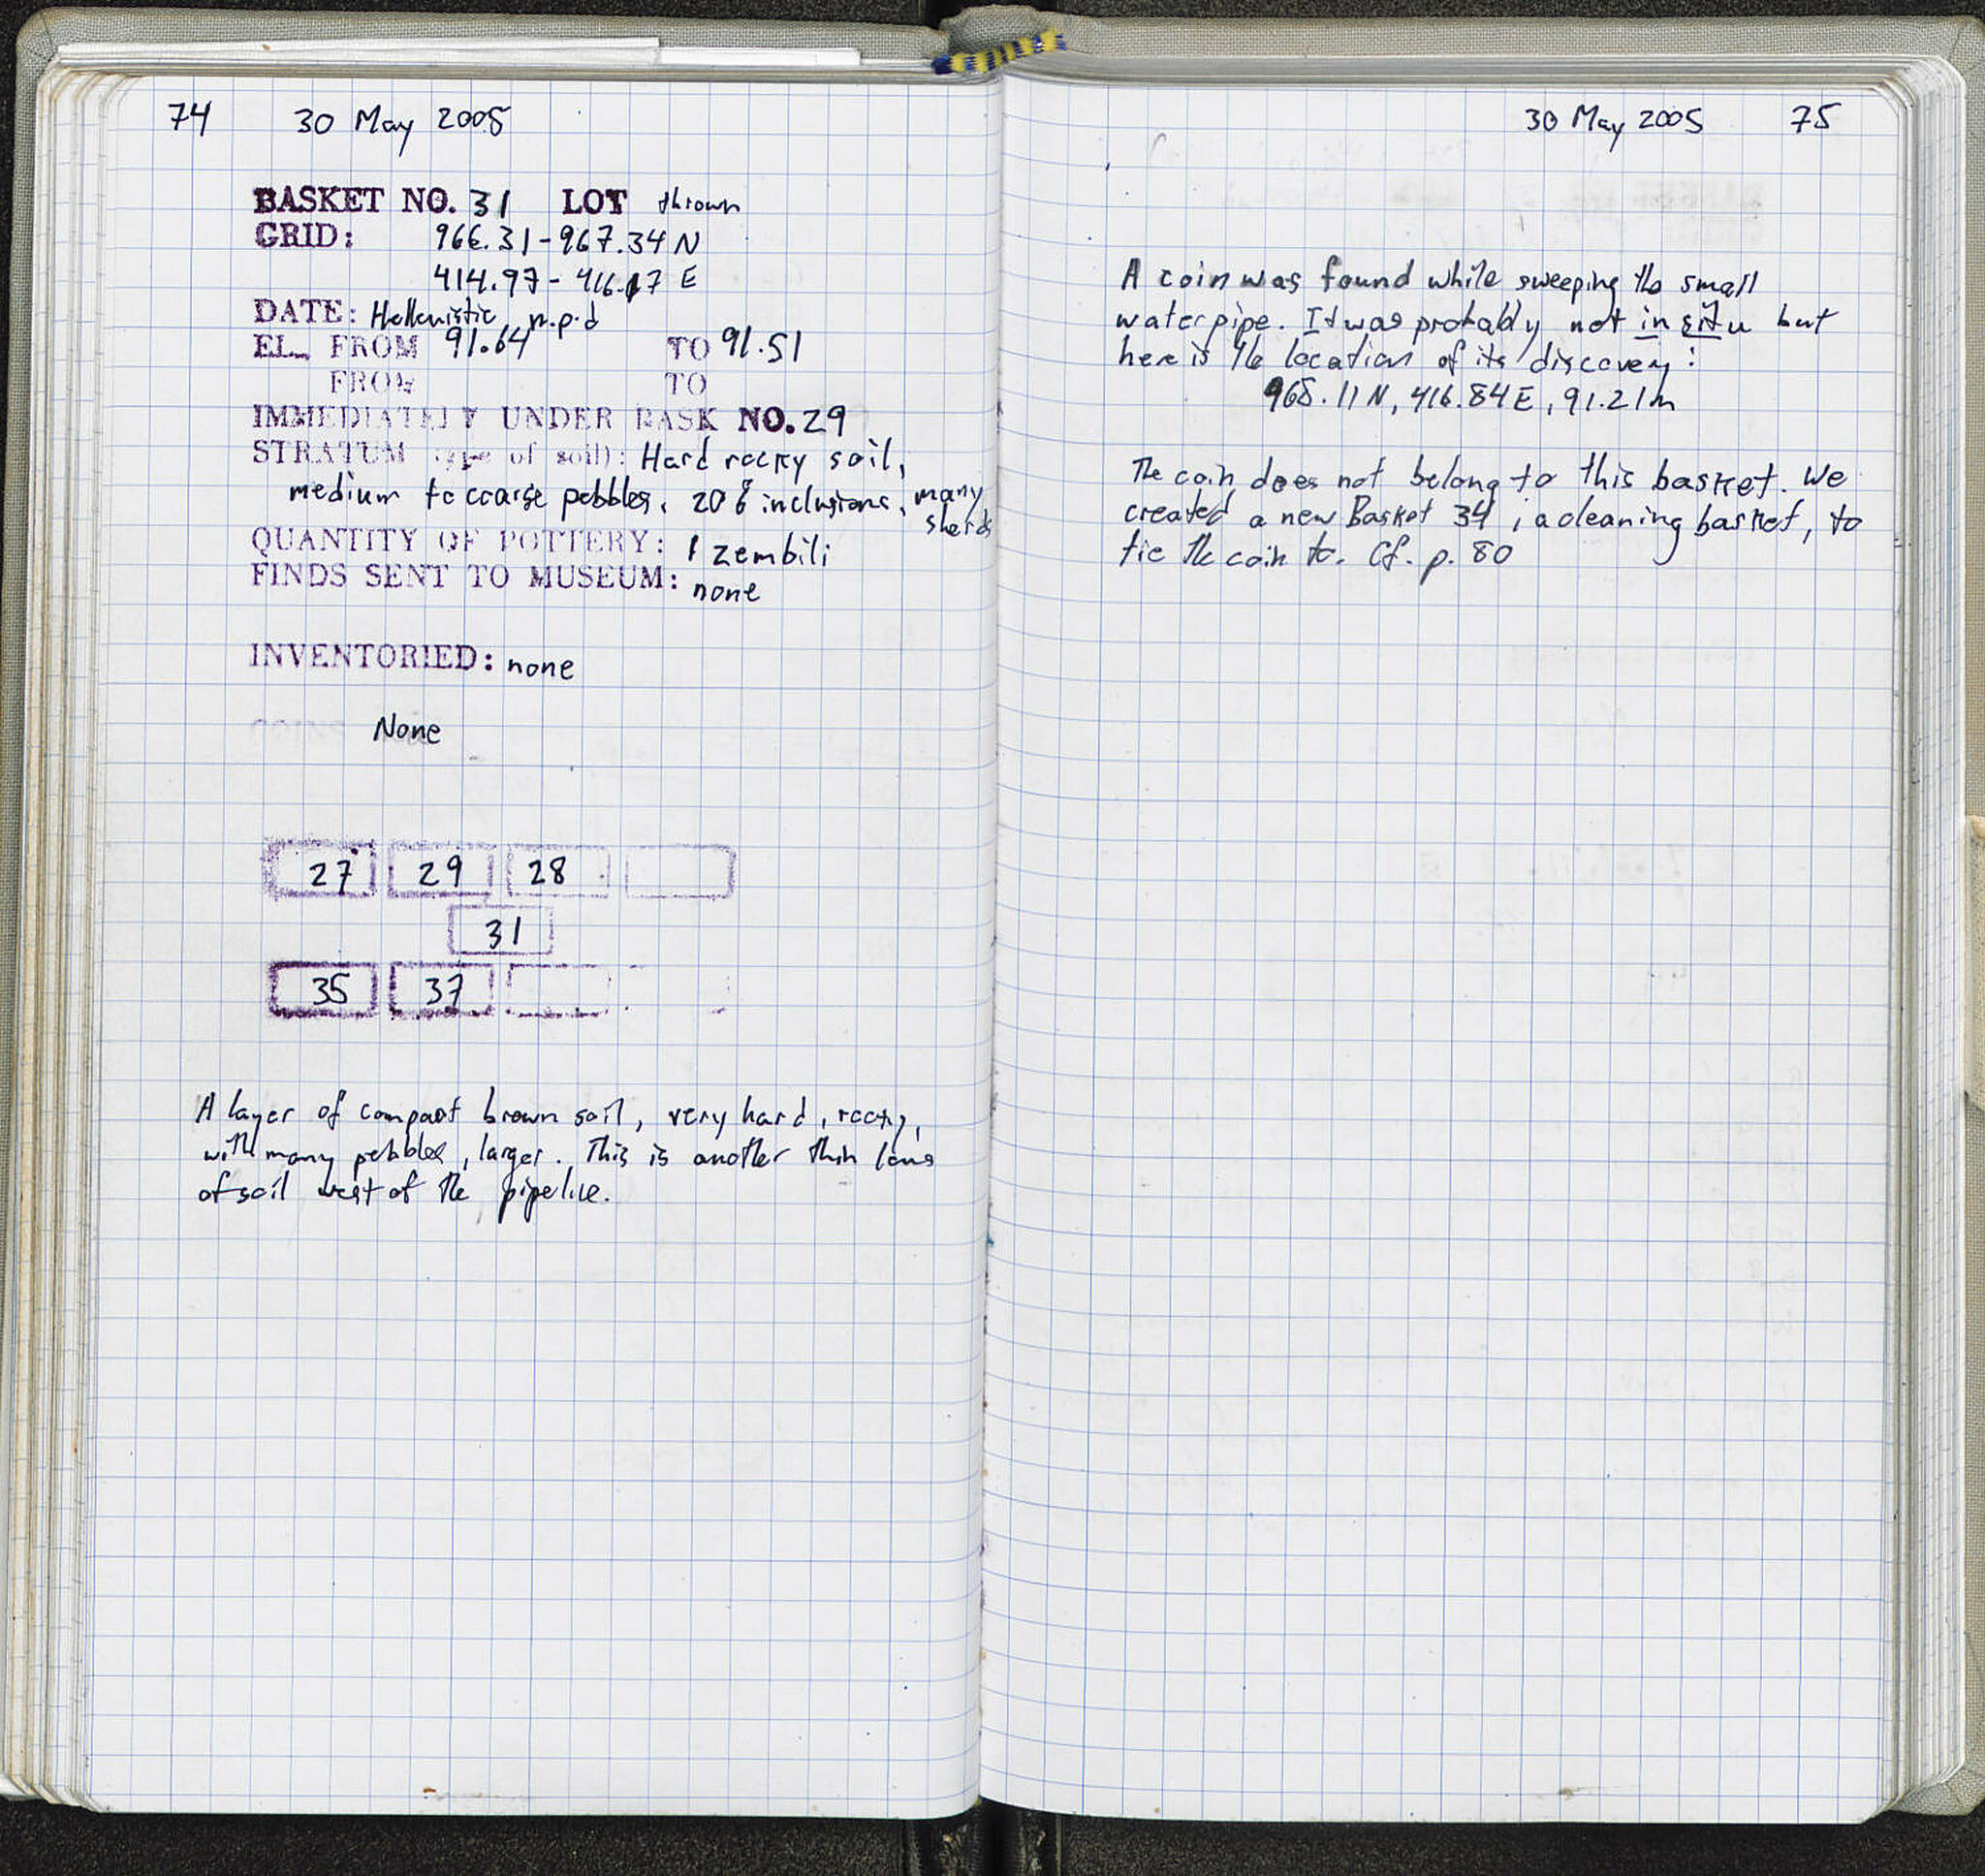 74 30 May 2005
BASKET NO. 31 LOT thrown
GRID: 966.31-967.34 N
414.97-416.17 E
DATE: Hellenistic n.p.d
EL. FROM 91.64 TO 91.51
FROM TO
IMMEDIATELY UNDER BASK NO. 29
STRATUM (type of soil): Hard rocky soil,
medium to coarse pebbles, 20% inclusions, many
sherds
QUANTITY OF POTTERY: 1 zembili
FINDS SENT TO MUSEUM: none
INVENTORIED: none
COINS None
27 29 28
31
35 37
A layer of compact brown soil, very hard, rocky,
with many pebbles, larger. This is another thin lens
of soil west of the pipeline.
30 May 2005 75
A coin was found while sweeping the small
water pipe. It was probably not in situ but
here is the location of its discovery:
968.11 N, 416.84 E, 91.21m
The coin does not belong to this basket. We
created a new Basket 34, a cleaning basket, to
tie the coin to. Cf. p. 80